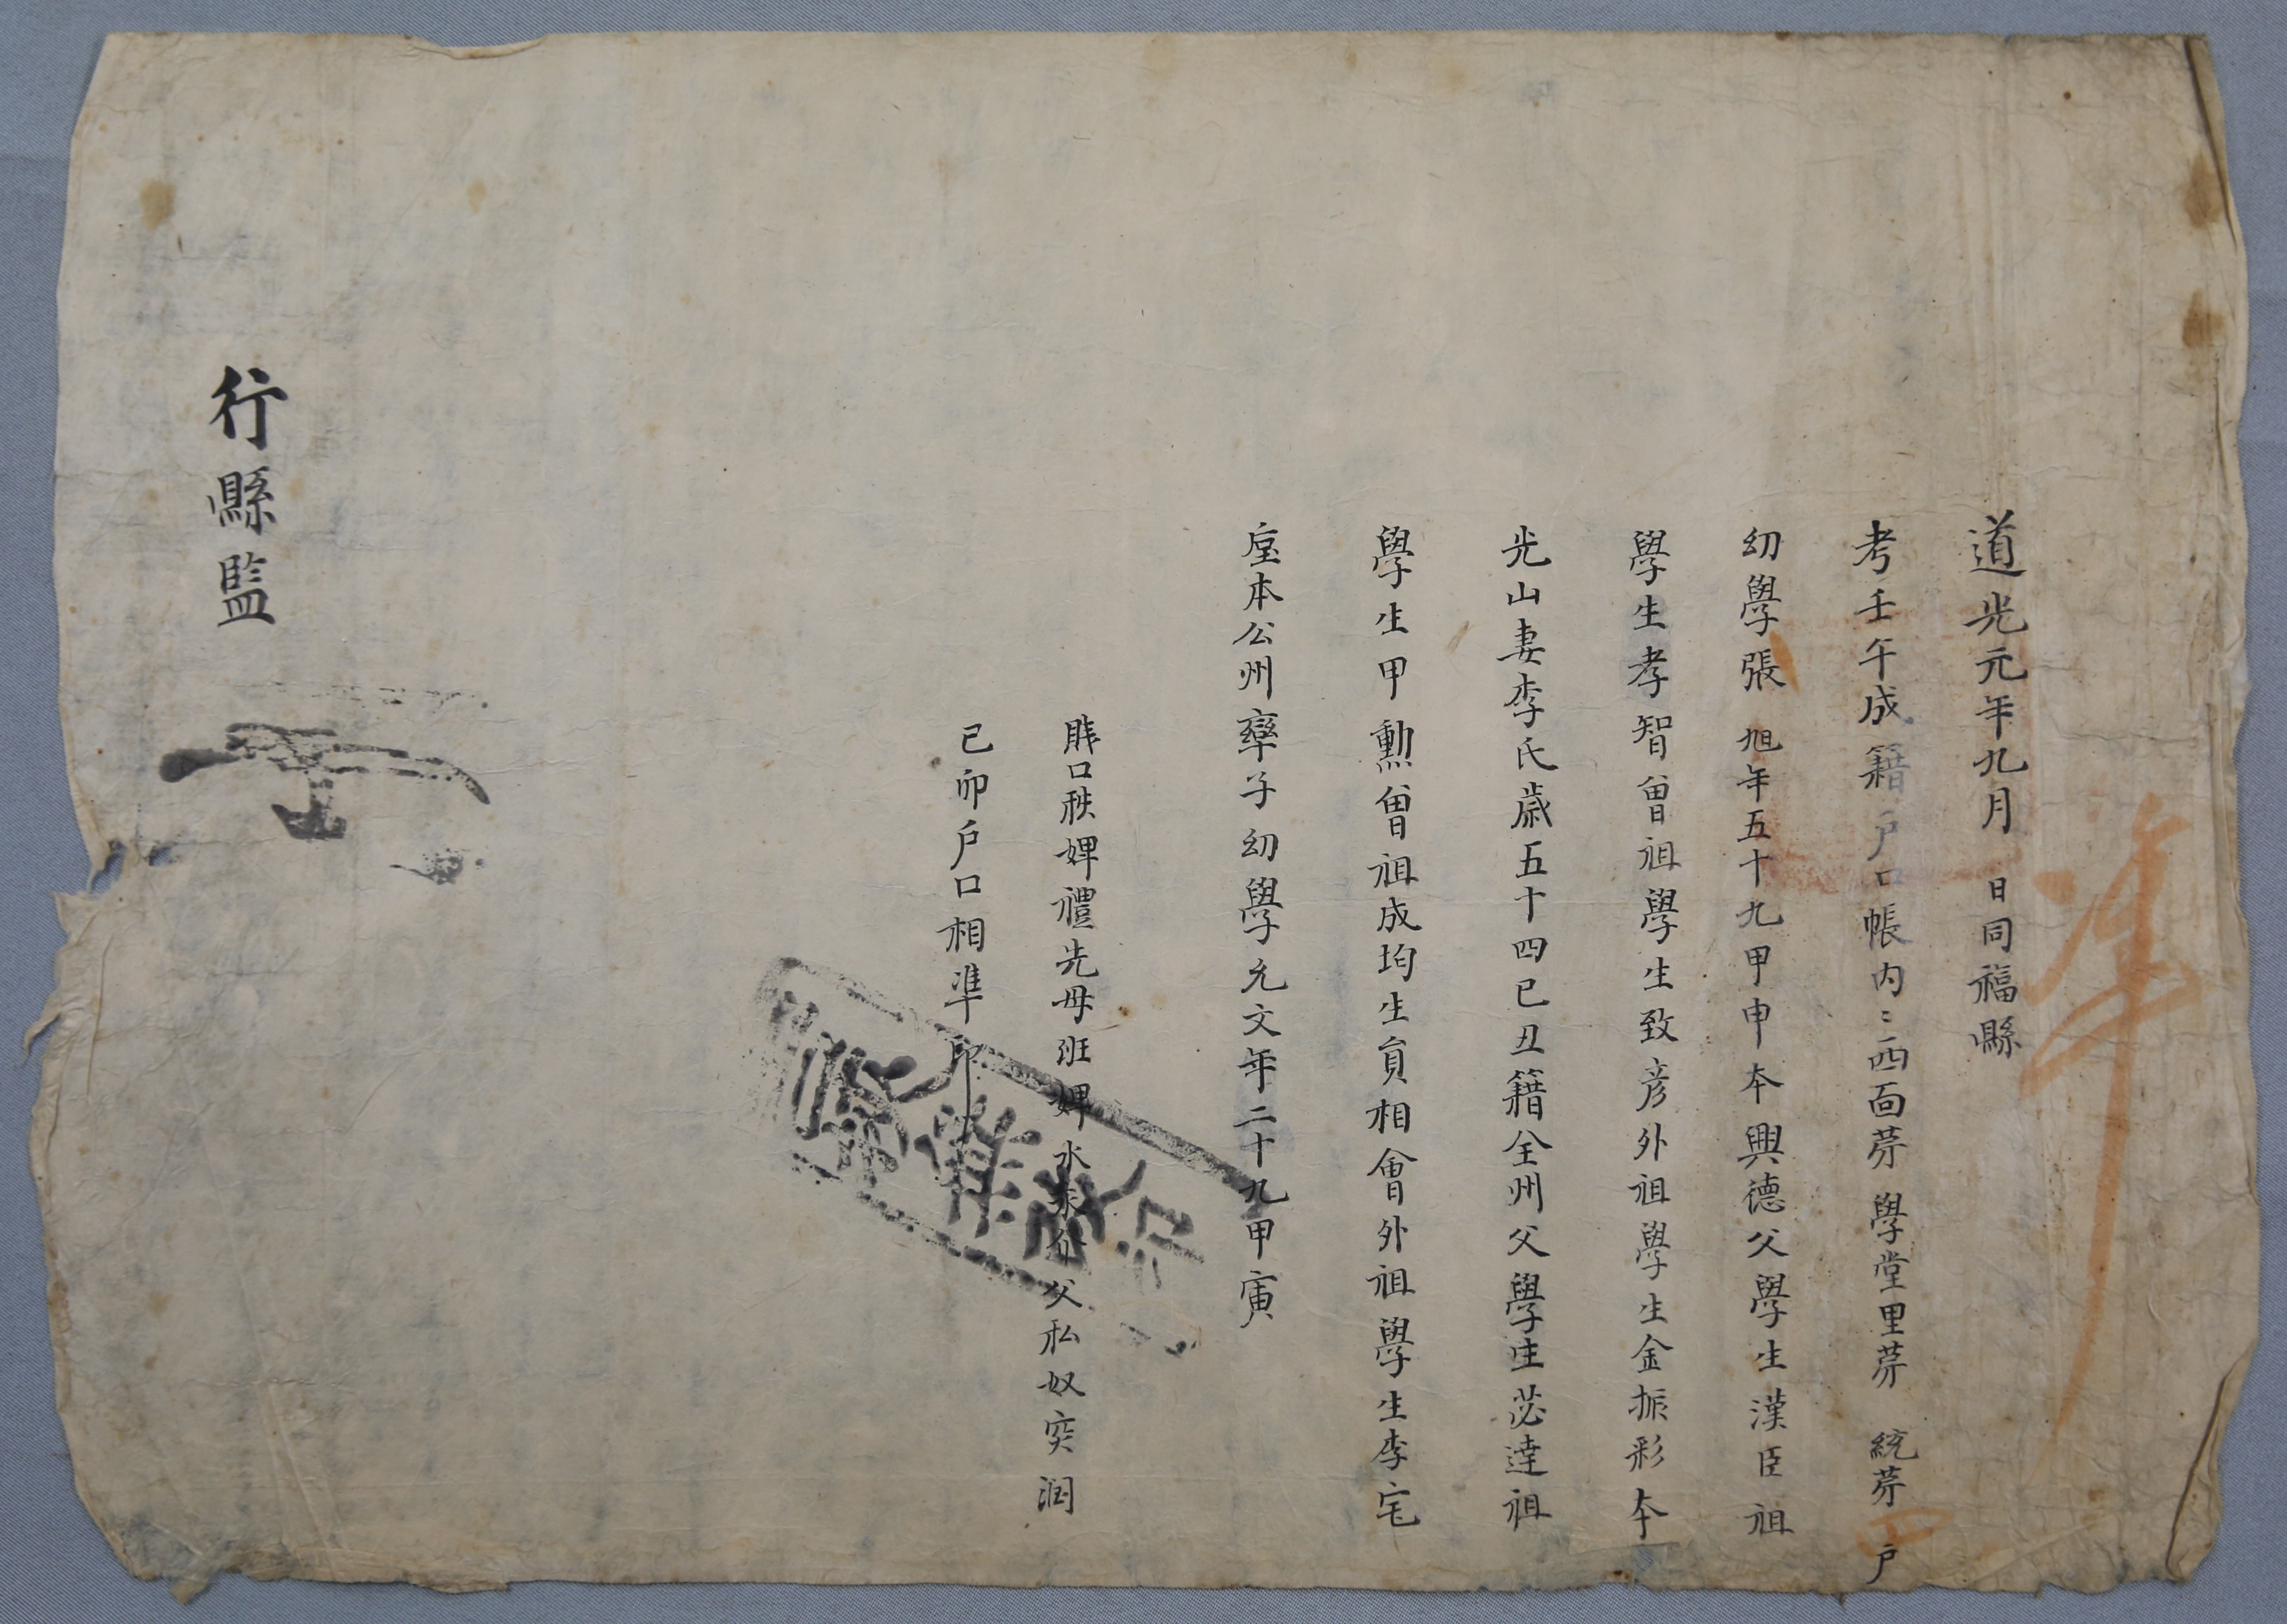 準
道光元年九月 日同福縣
考壬午成籍户口帳內 西面苐 學堂里苐 統苐四户
幼學張 旭年五十九甲申本興德父學生漢臣祖
學生孝智曾祖學生致彦外祖學生金振彩本
光山妻李氏歲五十四巳丑籍全州父學生苾達祖
學生甲勳曾祖成均生員相會外祖學生李宅
垕本公州率子幼學允文年二十九甲寅
賤口秩婢禮先母班婢水永介父私奴突润
已卯户口相準印
行縣監